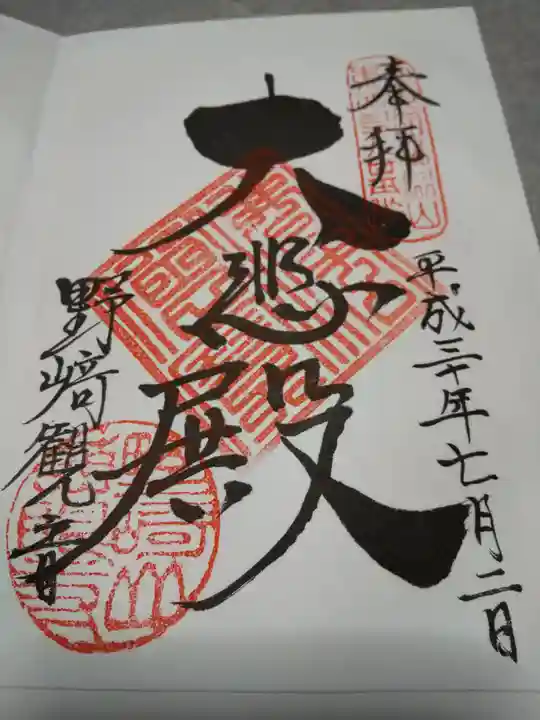 奉拝
平成三十年七月二日
大悲殿
野﨑觀音